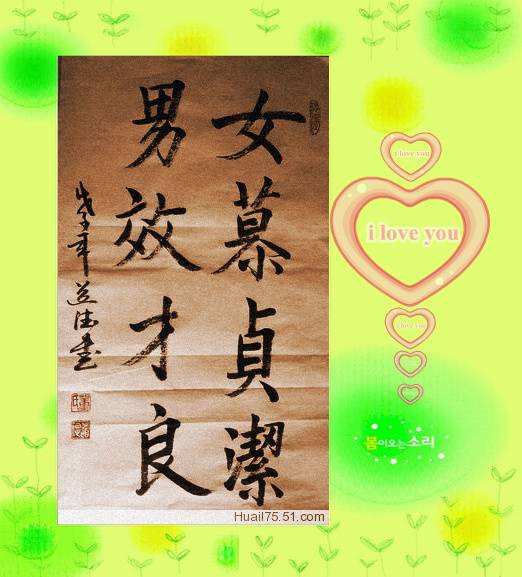 女慕貞潔
男效才良
戊子年 道德書
i love you
i love you
i love you
봄이오는소리
Huail75.51.com